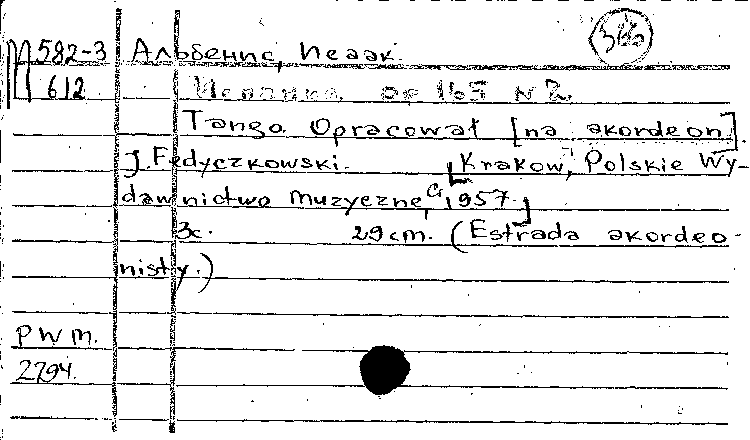 366
П 582-3 Альбенис, Исаак.
612 Испания op 165 N 2.
Tango. Opracował [na akordeon].
J. Fedyczkowski. [Krakow, Polskie Wy-
dawnictwo muzyczne, C1957.]
3c. 29 cm. (Estrada akordeo-
nisty.)
PWM.
2794.